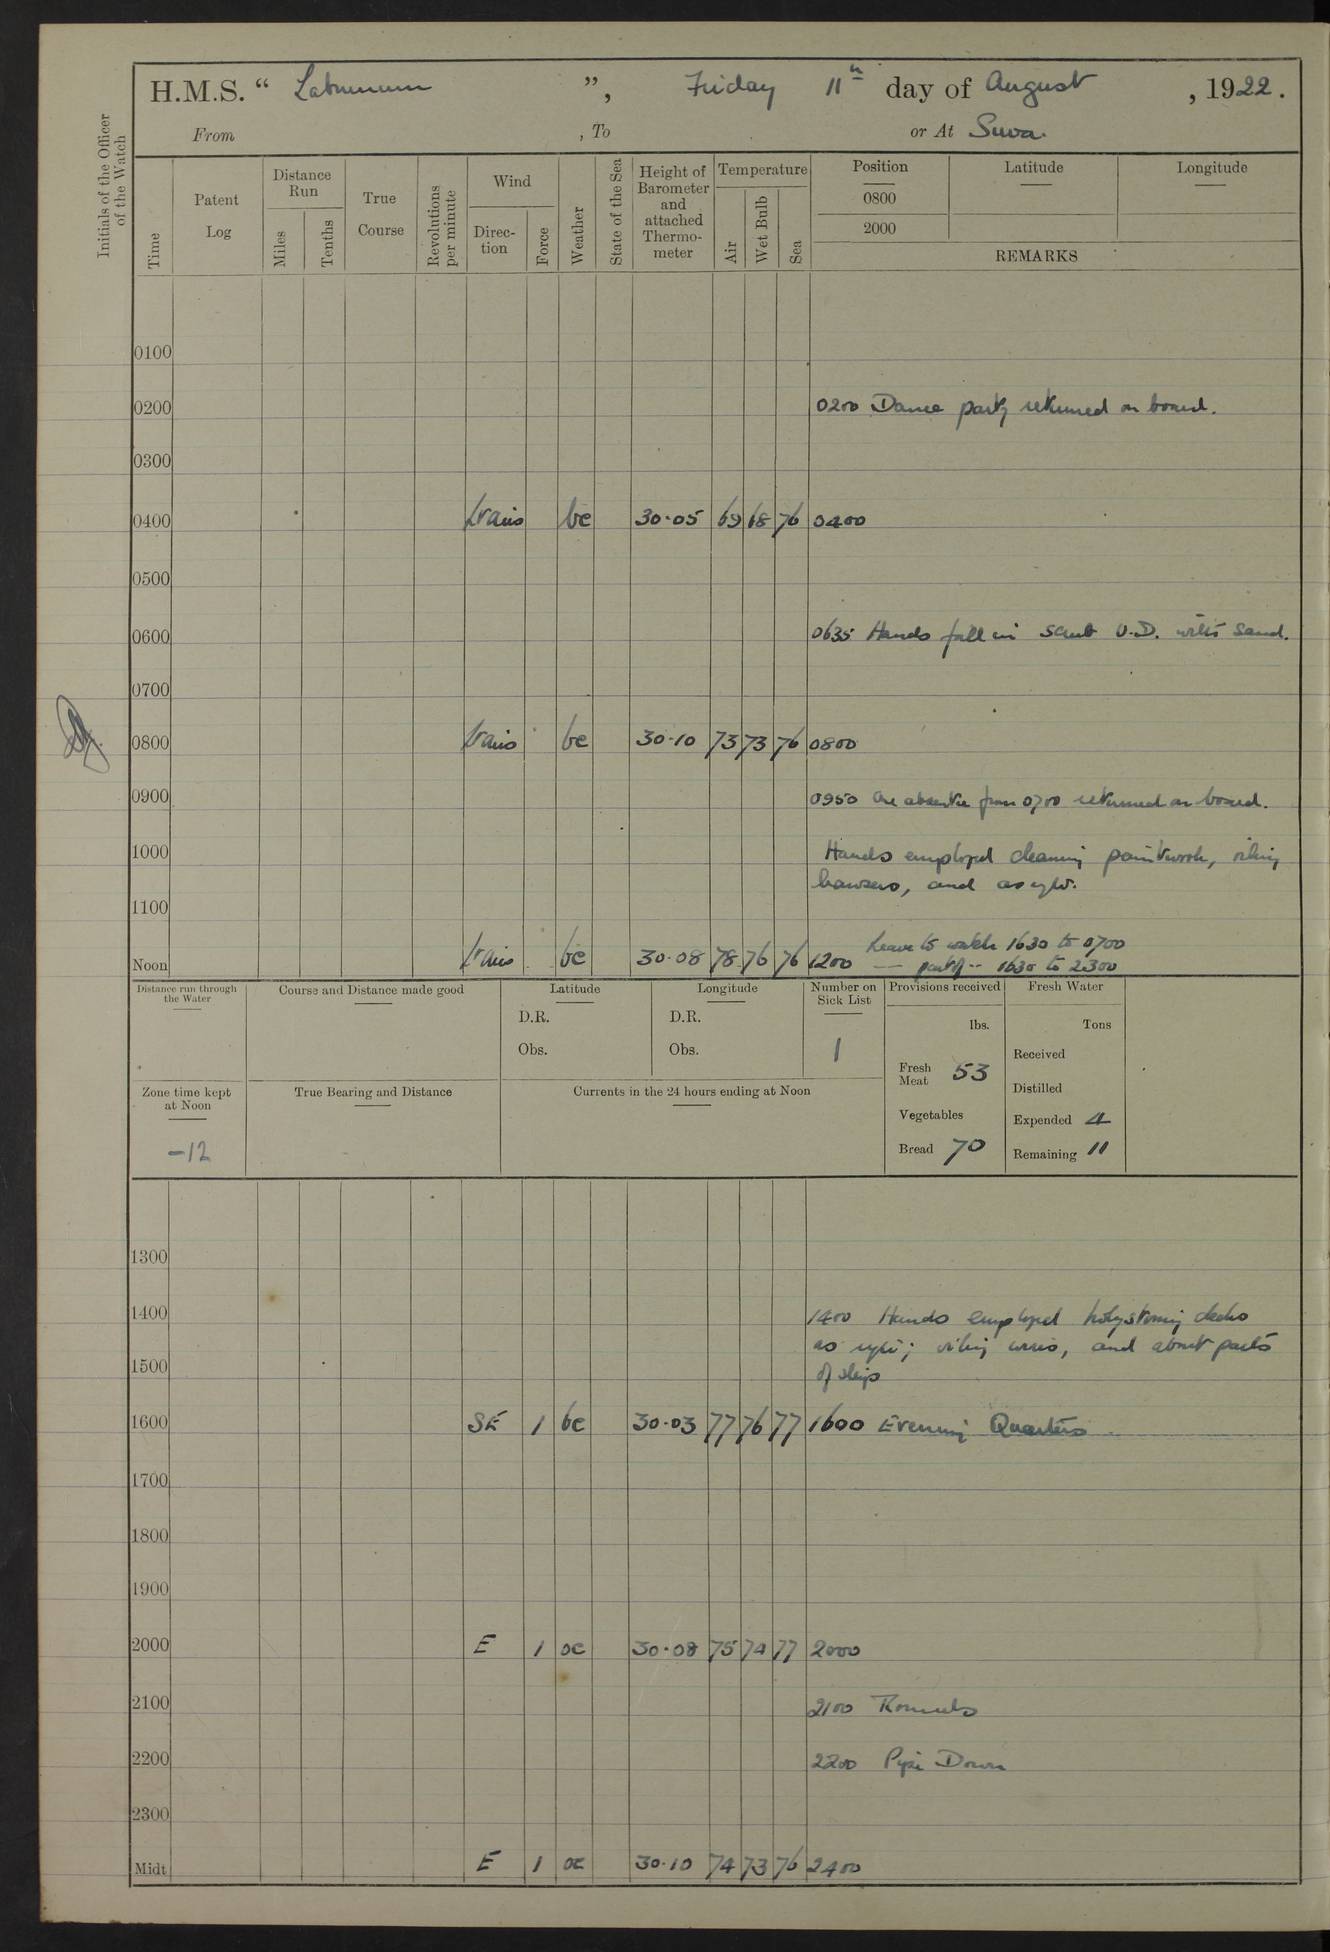 H.M.S. “ Laburnum ”, Friday 11th day of August , 1922.
From , To or At Suva.
Initials of the Officer of the Watch
Time
Patent Log
Distance Run
Miles
Tenths
True Course
Revolutions per minute
Wind
Direc-tion
Force
Weather
State of the Sea
Height of Barometer and attached Thermo-meter
Temperature
Air
Wet Bulb
Sea
Position
0800
2000
Latitude
Longitude
REMARKS
0100
0200 0200 Dance party returned on board.
0300
0400 bc 30.05 69 68 76 0400
0500
0600 0635 Hands fall in scrub U.D. with sand.
0700
0800 bc 30.10 73 73 76 0800
0900 0950 One absentee from 0700 returned on board.
1000 Hands employed cleaning paintwork, oiling
hawsers, and
1100
Leave to watch 1630 to 0700
Noon bc 30.08 78 76 76 1200 — part — 1630 to 2300
Distance run through the Water
Course and Distance made good
Latitude
D.R.
Obs.
Longitude
D.R.
Obs.
Number on Sick List
1
Provisions received
lbs.
Fresh Meat 53
Vegetables
Bread 70
Fresh Water
Tons
Received
Distilled
Expended 4
Remaining 11
Zone time kept at Noon
-12
True Bearing and Distance
Currents in the 24 hours ending at Noon
1300
1400 1400 Hands employed holystoning decks
as ; oiling wires, and about parts
1500 of ship
1600 SE 1 bc 30.03 77 76 77 1600 Evening Quarters
1700
1800
1900
2000 E 1 oc 30.08 75 74 77 2000
2100 2100 Rounds
2200 2200 Pipe Down
2300
Midt E 1 oc 30.10 74 73 76 2400